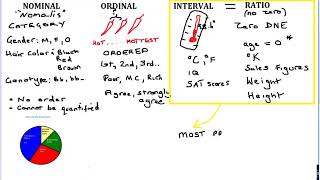 NOMINAL
"Nomalis"
CATEGORY
Gender: M, F, O
Hair Color: Black
Red
Brown
Genotype: Bb, bb..
• No order
• Cannot be quantified
ORDINAL
HOT... HOTTEST
ORDERED
1st, 2nd, 3rd...
Poor, MC, Rich
Agree, strongly
agree
INTERVAL = RATIO
(no zero)
Zero DNE
age = 0
°C, °F
°K
IQ
Sales Figures
SAT scores
Weight
Height
MOST PO